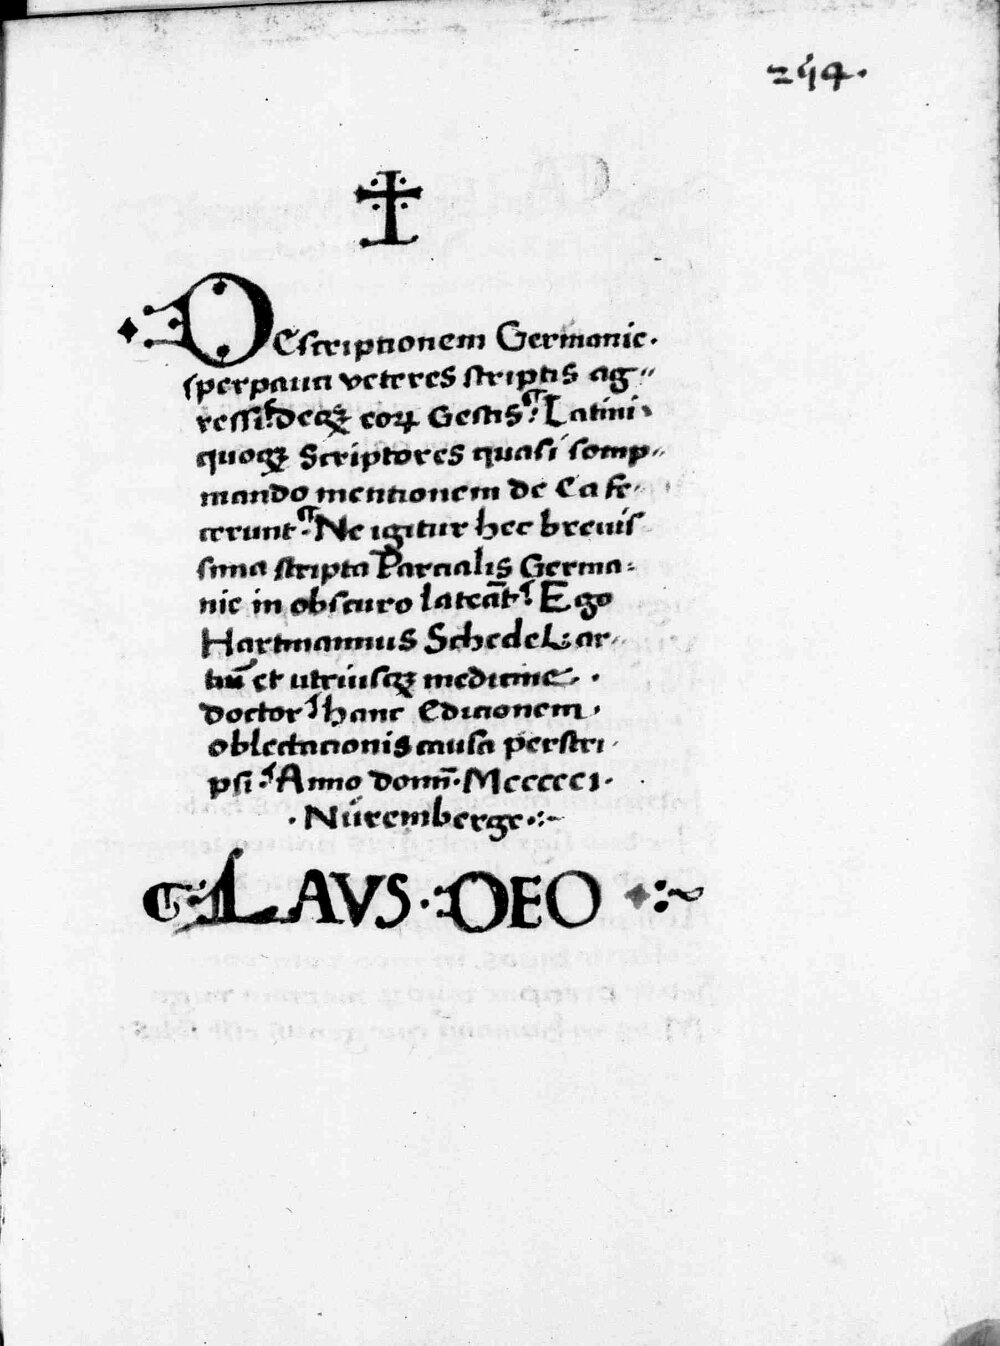 254.
DEscriptionem Germanie.
sperpauci veteres scriptis ag"
ressi: deqꝫ eoꝝ Gestis: Latini
quoqꝫ Scriptores quasi somp"
niando mentionem de Ea fe"
cerunt. Ne igitur hec breuis
sima scripta Parcialis Germa:
nie in obscuro lateāt: Ego
Hartmannus Schedel: ar"
tiū et utriusqꝫ medicine.
doctor hanc Edicionem.
oblectacionis causa perstri
psi: Anno domī. Mccccci.
. Nüremberge.:~
LAVS. DEO :~